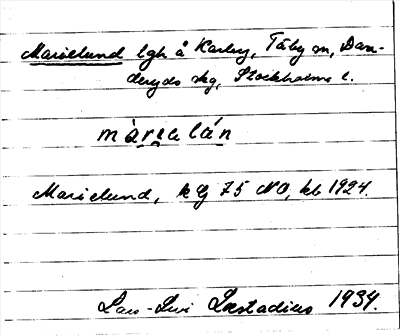 Marielund lgh å Karby, Täby sn, Dan-
deryds skg, Stockholms l.
màrıelán
Marielund, k bl 75 NO, kb 1924.
Lars-Levi Læstadius 1934.